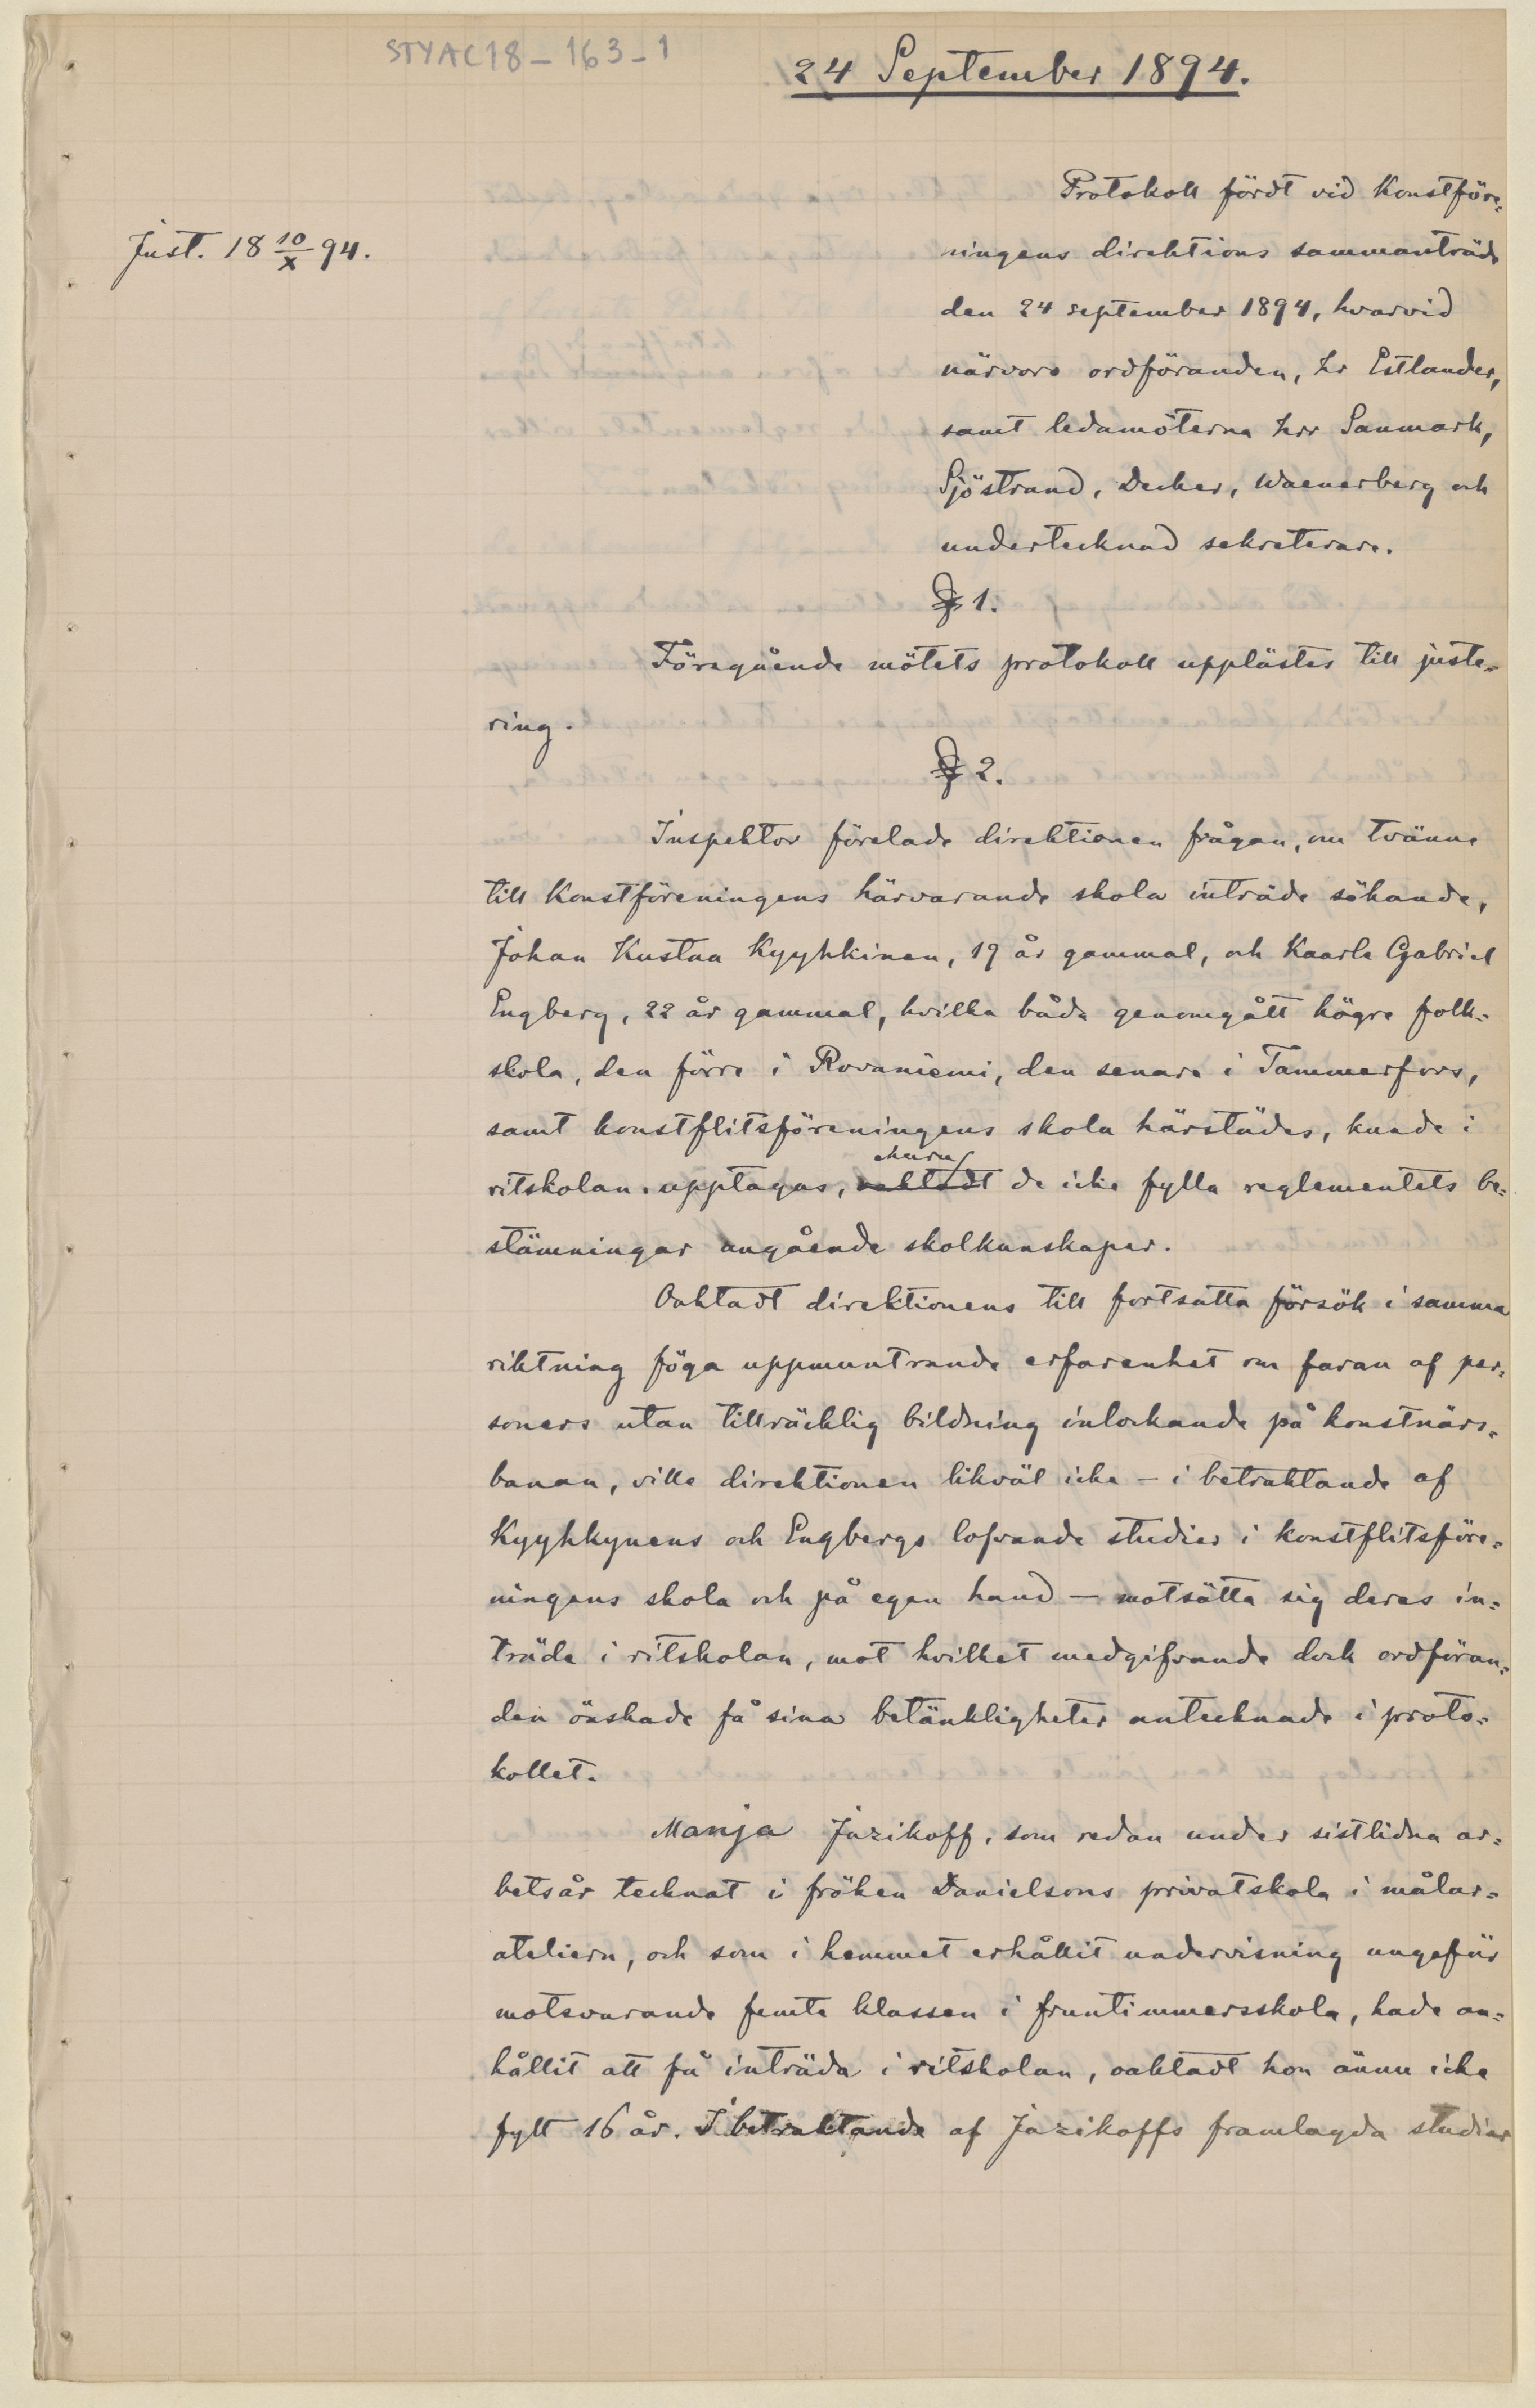 STYAC18-163-1
24 September 1894.
Just. 18 10/X 94.
Protokoll fördt vid Konstföre-
ningens direktions sammanträde
den 24 september 1894, hvarvid
närvoro ordföranden, hr Estlander,
samt ledamöterna hrr Sanmark,
Sjöstrand, Decker, Waenerberg och
undertecknad sekreterare.
§ 1.
Föregående mötets protokoll upplästes till juste-
ring.
§ 2.
Inspektor förelade direktionen frågan, om tvänne
till Konstföreningens härvarande skola inträde sökande,
Johan Kustaa Kyyhkinen, 19 år gammal, och Kaarle Gabriel
Engberg, 22 år gammal, hvilka båda genomgått högre folk-
skola, den förre i Rovaniemi, den senare i Tammerfors,
samt konstflitsföreningens skola härstädes, kunde i
ehuru
ritskolan upptagas, oaktadt de icke fylla reglementets be-
stämningar angående skolkunskaper.
Oaktadt direktionens till fortsatta försök i samma
riktning föga uppmuntrande erfarenhet om faran af per-
soners utan tillräcklig bildning inlockande på konstnärs-
banan, ville direktionen likväl icke – i betraktande af
Kyyhkynens och Engbergs lofvande studier i konstflitsföre-
ningens skola och på egen hand – motsätta sig deras in-
träde i ritskolan, mot hvilket medgifvande dock ordföran-
den önskade få sina betänkligheter antecknade i proto-
kollet.
Manja Jazikoff, som redan under sistlidna ar-
betsår tecknat i fröken Danielsons privatskola i målar-
ateliern, och som i hemmet erhållit undervisning ungefär
motsvarande femte klassen i fruntimmersskola, hade an-
hållit att få inträda i ritskolan, oaktadt hon ännu icke
fyllt 16 år. I betraktande af Jazikoffs framlagda studier